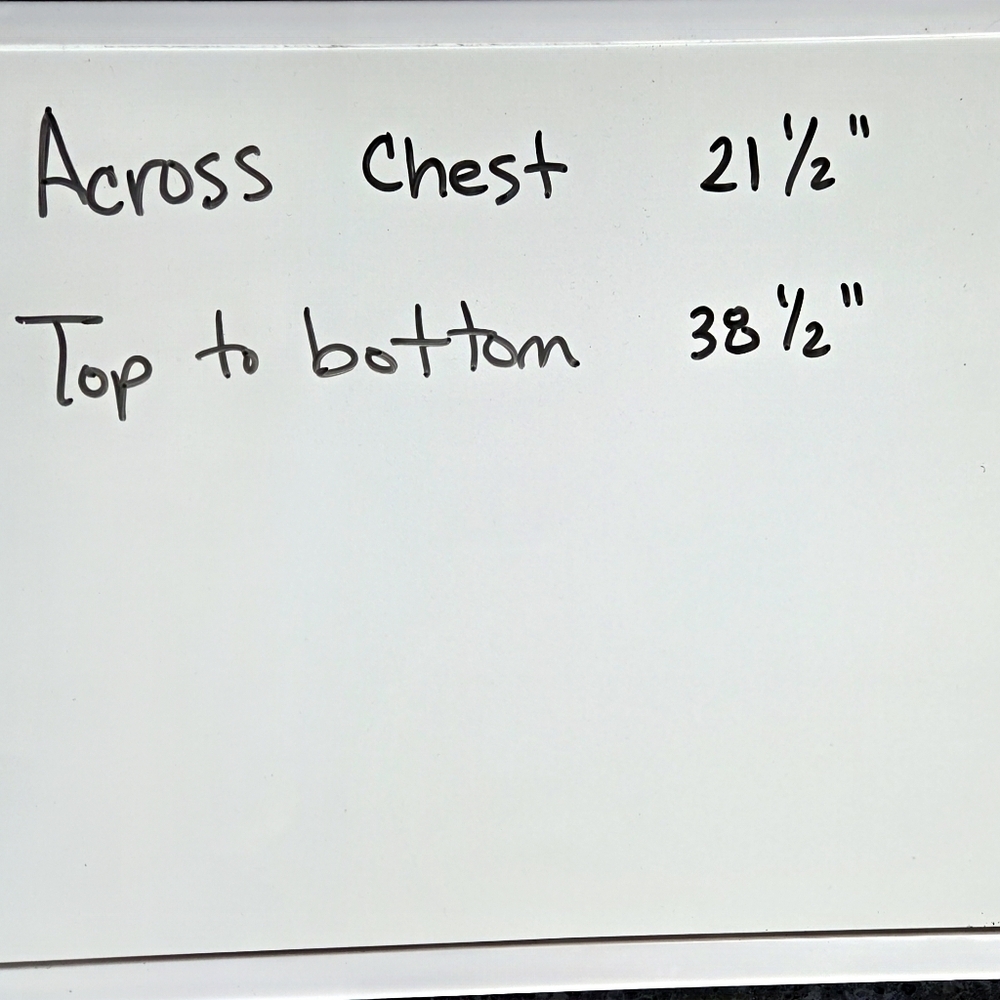 Across Chest 21 1/2"
Top to bottom 38 1/2"